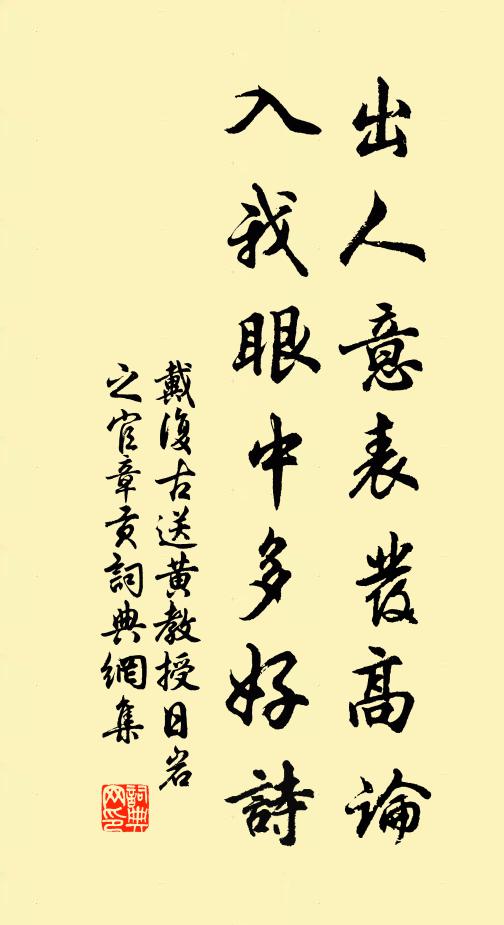 出人意表發高論
入我眼中多好詩
戴復古送黃教授日岩
之官章貢詞典網集
詞典
网印